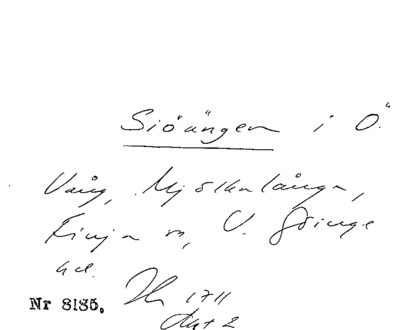 Siöängen i Ö.
Vång, Mjölkalånga,
Finja sn, V. Göinge
hd.
Nr 8185. Hn 1711